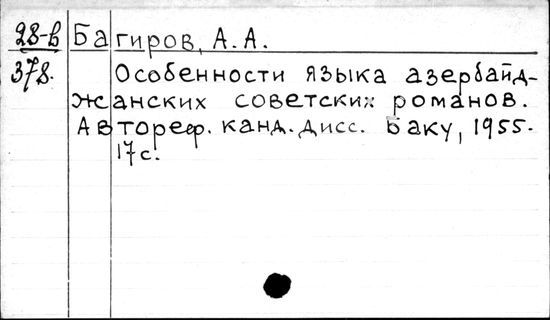 28-в Багиров, А.А.
378. Особенности языка азербайд-
жанских советских романов.
Автореф. канд. дисс. Баку, 1955.
17 с.